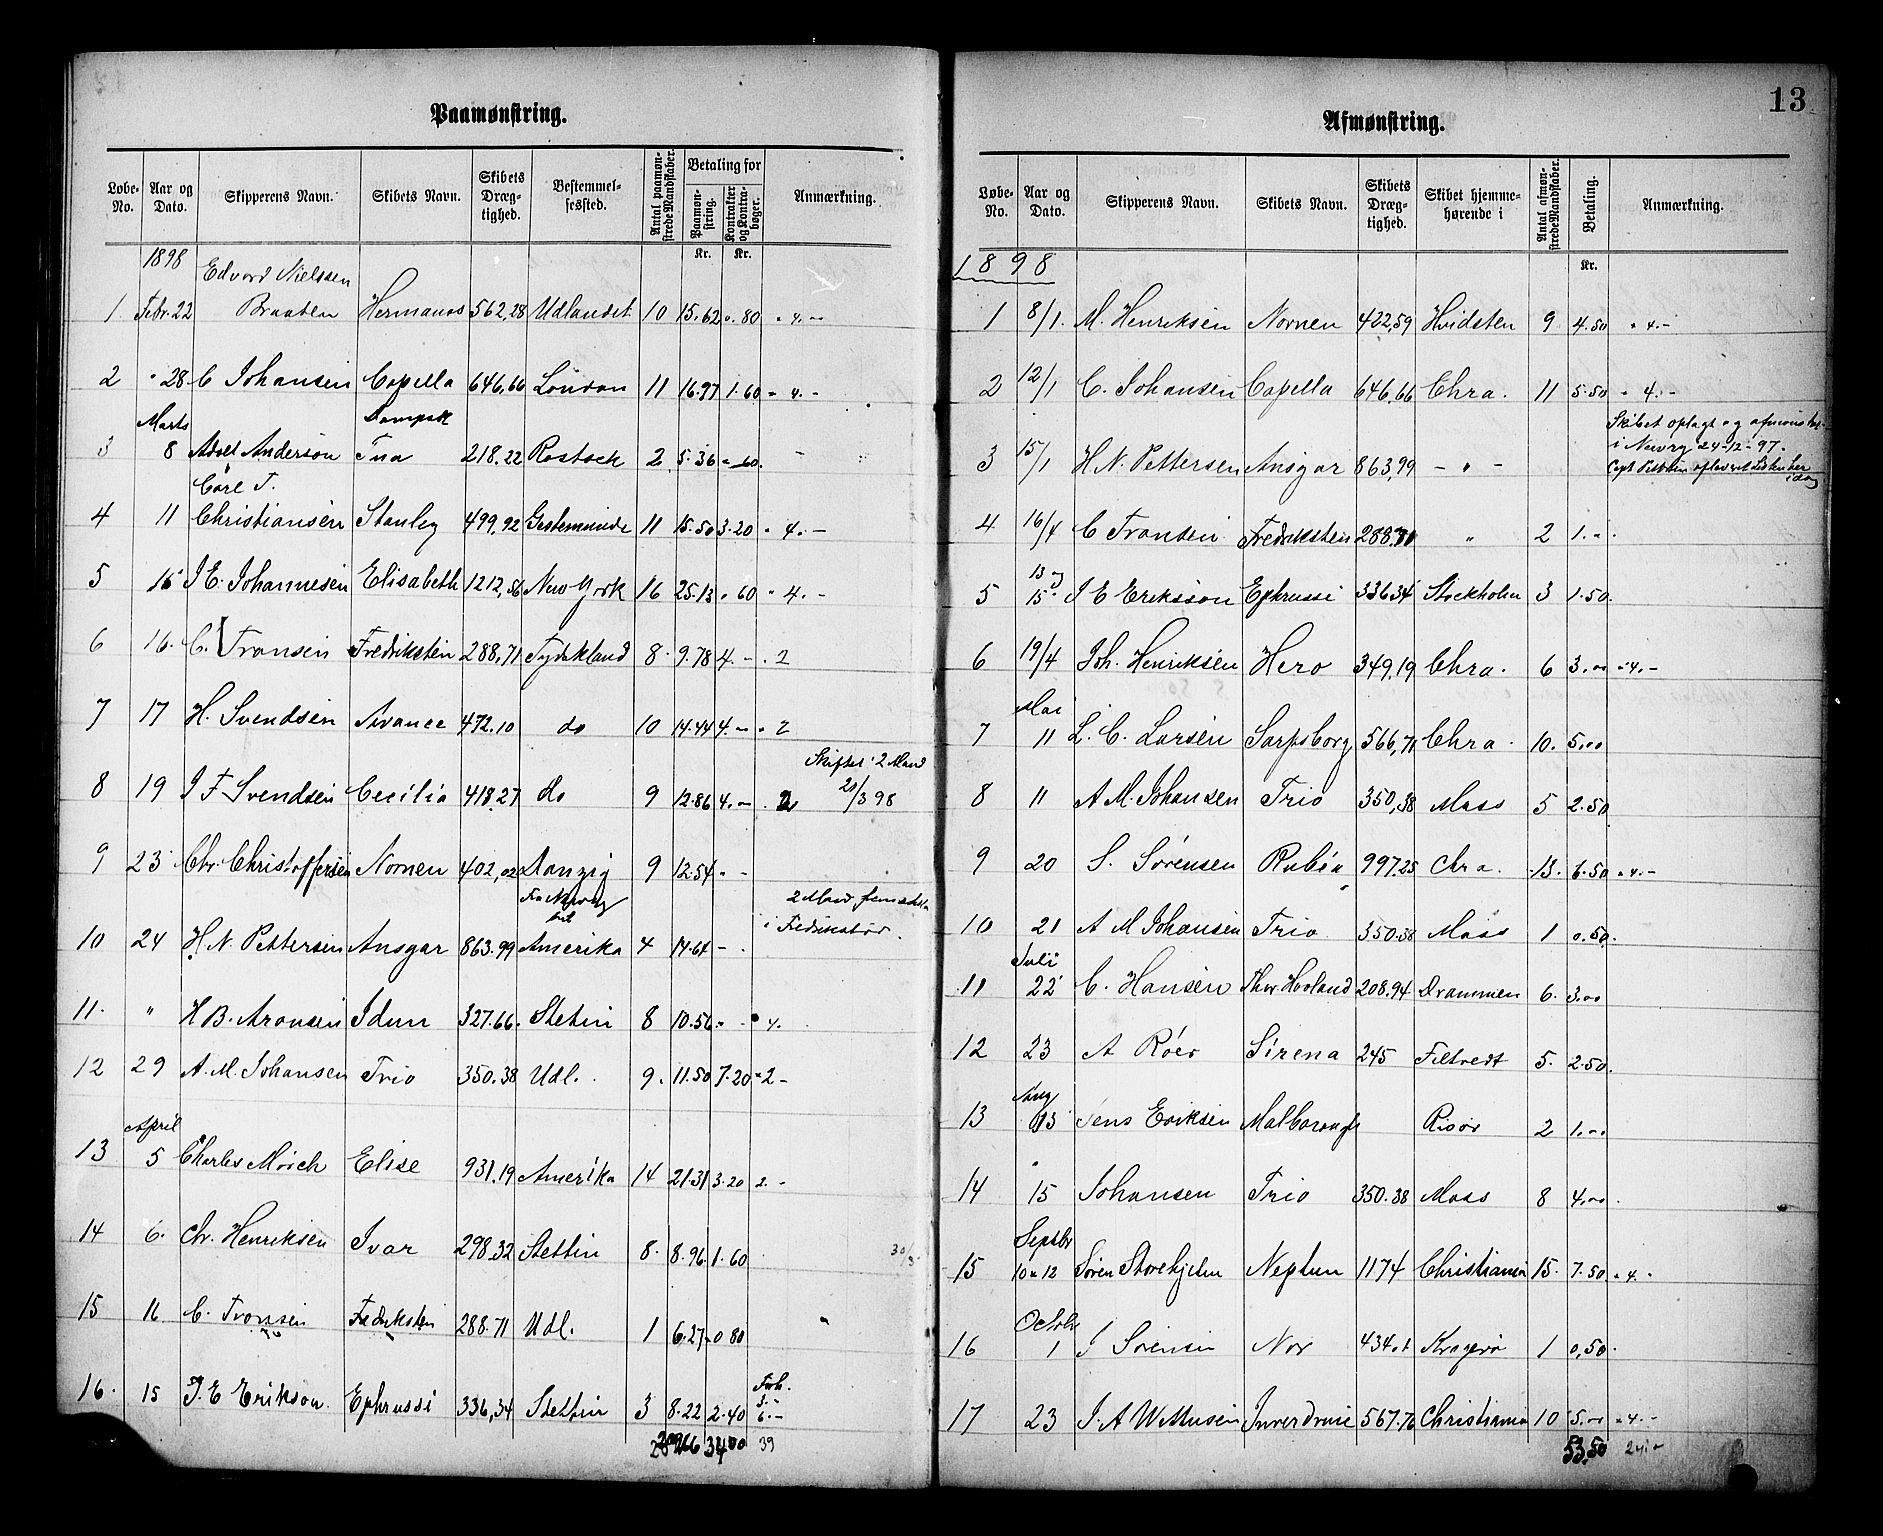 13
Paamønstring.
Løbe-No. Aar og Dato. Skipperens Navn. Skibets Navn. Skibets Dræg-tighed. Bestemmel-sessted. Antal paamøn-strede Mandskaber. Betaling for Paamøn-string. Kontrakter og Kontra-bøger. Anmærkning.
Kr. Kr.
1898 Edvard Nielssen
1 Febr. 22 Braaten Hermanos 562,28 Udlandet 10 15.62 ". 80 " 4. -
2 " 28 C Johansen Capella 646,66 London 11 16.97 1.60 " 4. -
Marts Dampsk
3 8 Adolf Anderson Tua 218.22 Rostock 2 5.36 " 60. -
Carl T.
4 11 Christiansen Stanley 499,92 Gestemünde 11 15.50 3.20 " 4. -
5 15 J E. Johannesen Elisabeth 1212,56 New York 16 25.13 " 60 " 4. -
6 16. C. Transen Fredriksten 288,71 Tydskland 8. 9.78 4. - . 2
7 17 H. Svendsen Avance 472.10 do 10 14.44 4. - " 2
Skiftet 2 Mand
8 19 J F Svendsen Cecilia 418.27 do 9 12.86 4. - . 2 20/3 98
9 23 Chr. Christoffersen Nornen 402,02 Danzig 9 12.54 " -
Fra til 2 Mand
10 24 H. N. Pettersen Ansgar 863.99 Amerika 4 14.64 - . i
11. " H B. Aronsen Idun 327.66. Stetin 8 10.56 " - " 4.
12 29 A. M. Johansen Trio 350.38 Udl. 9. 11.50 7.20 " 2 -
April
13 5 Charles Mørch Elise 931.19 Amerika 14 21.31 3.20 2. -
14 6. Chr. Henriksen Ivar 298,32 Stettin 8. 8.96 1.60
30/3
15 11 C. Transen Fredriksten 288.71 Udl. 1 6.27 0 80
16. 15 J. E Erikson. Ephrussi 336,34 Stettin 3 8.22 2.40 6. -
39
Afmønstring.
Løbe-No. Aar og Dato. Skipperens Navn. Skibets Navn. Skibets Dræg-tighed. Skibet hjemme-hørende i Antal afmøn-strede Mandskaber. Betaling. Anmærkning.
Kr.
1898
1 8/1. M. Henriksen Nornen 422,59 Hvidsten 9 4.50 " 4. -
2 12/1 C. Johansen Capella 646,66 Chra. 11 5.50 " 4. -
Skibet oplagt og afmønstret
i Newry 24-12-97.
3 15/1 H. N. Pettersen Ansgar 863,99 - " - Capt Pettersen idag
4 16/4 C Transen Fredriksten 288.71 " 2 1. " .
13 og
5 15 J E Eriksson Ephrussi 336.34 Stockholm 3 1.50.
6 19/4 Joh. Henriksen Hero 349,19 Chra. 6 3. " " 4. -
Mai
7 11 L. C. Larsen Sarpsborg 566,71 Chra. 10. 5.00
8 11 A M. Johansen Trio 350,38 Moss 5 2.50
9 20 S. Sørensen Rubin 997.25 Chra. 13. 6.50 " 4. -
10 21 A M Johansen Trio 350.38 Moss 1 0.50.
Juli
11 22 C. Hansen Thor Havland 208.94 Drammen 6. 3.00
12 23 A Röer Sirena 245 Filtvedt 5. 2.50.
Aug
13 13 Jens Eriksen Malborough Risør 2 1. - -
14 15 Johansen Trio 350.38 Moss 8 4.00
Septbr
15 10 & 12 Søren Storehjelm Neptun 1174 Christiania 15. 7.50 " 4. -
Octobr
16 1 J Sørensen Nor 434.01 Kragerø 1 0,50.
17 23 J. A 567.76 Christiania 10 5.00 " 4. -
53.50